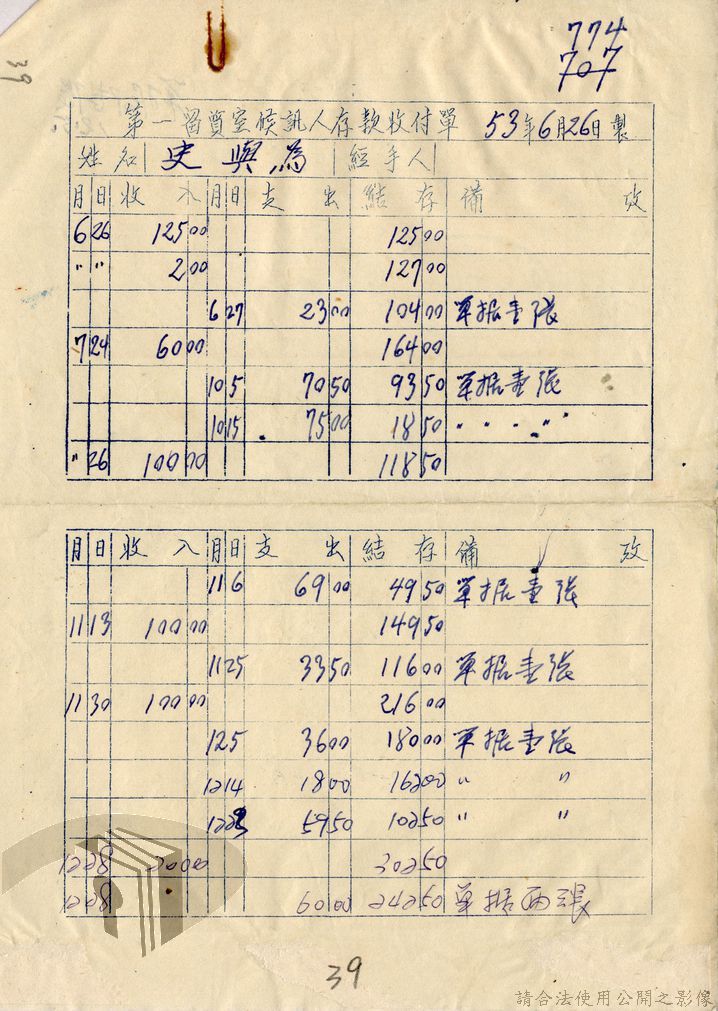 774
707
39
第一留質室候訊人存款收付單 53年6月26日製
姓名 史與為 經手人
月 日 收入 月 日 支出 結存 備攷
6 26 125 00 125 00
" " 2 00 127 00
6 27 23 00 104 00 單据壹張
7 24 60 00 164 00
10 5 70 50 93 50 單据壹張
10 15 75 00 18 50 " " " "
" 26 100 00 118 50
月 日 收入 月 日 支出 結存 備攷
11 6 69 00 49 50 單据壹張
11 13 100 00 149 50
11 25 33 50 116 00 單据壹張
11 30 100 00 216 00
12 5 36 00 180 00 單据壹張
12 14 18 00 162 00 " "
12 23 59 50 102 50 " "
12 28 200 00 302 50
12 28 60 00 242 50 單据兩張
39
請合法使用公開之影像